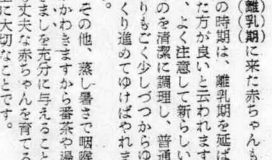 (離乳)期に来た赤ちゃんも
の時期は、離乳期を延ば
た方が良いと云われます
、よく注意して新らしい
のを清潔に調理し、普通
りもごく少しづつからゆ
くり進めてゆけばやれま
。
その他、蒸し暑さで咽喉
かわきますから番茶や湯
ましを充分に与えること
丈夫な赤ちゃんを育てる
に大切なことです。